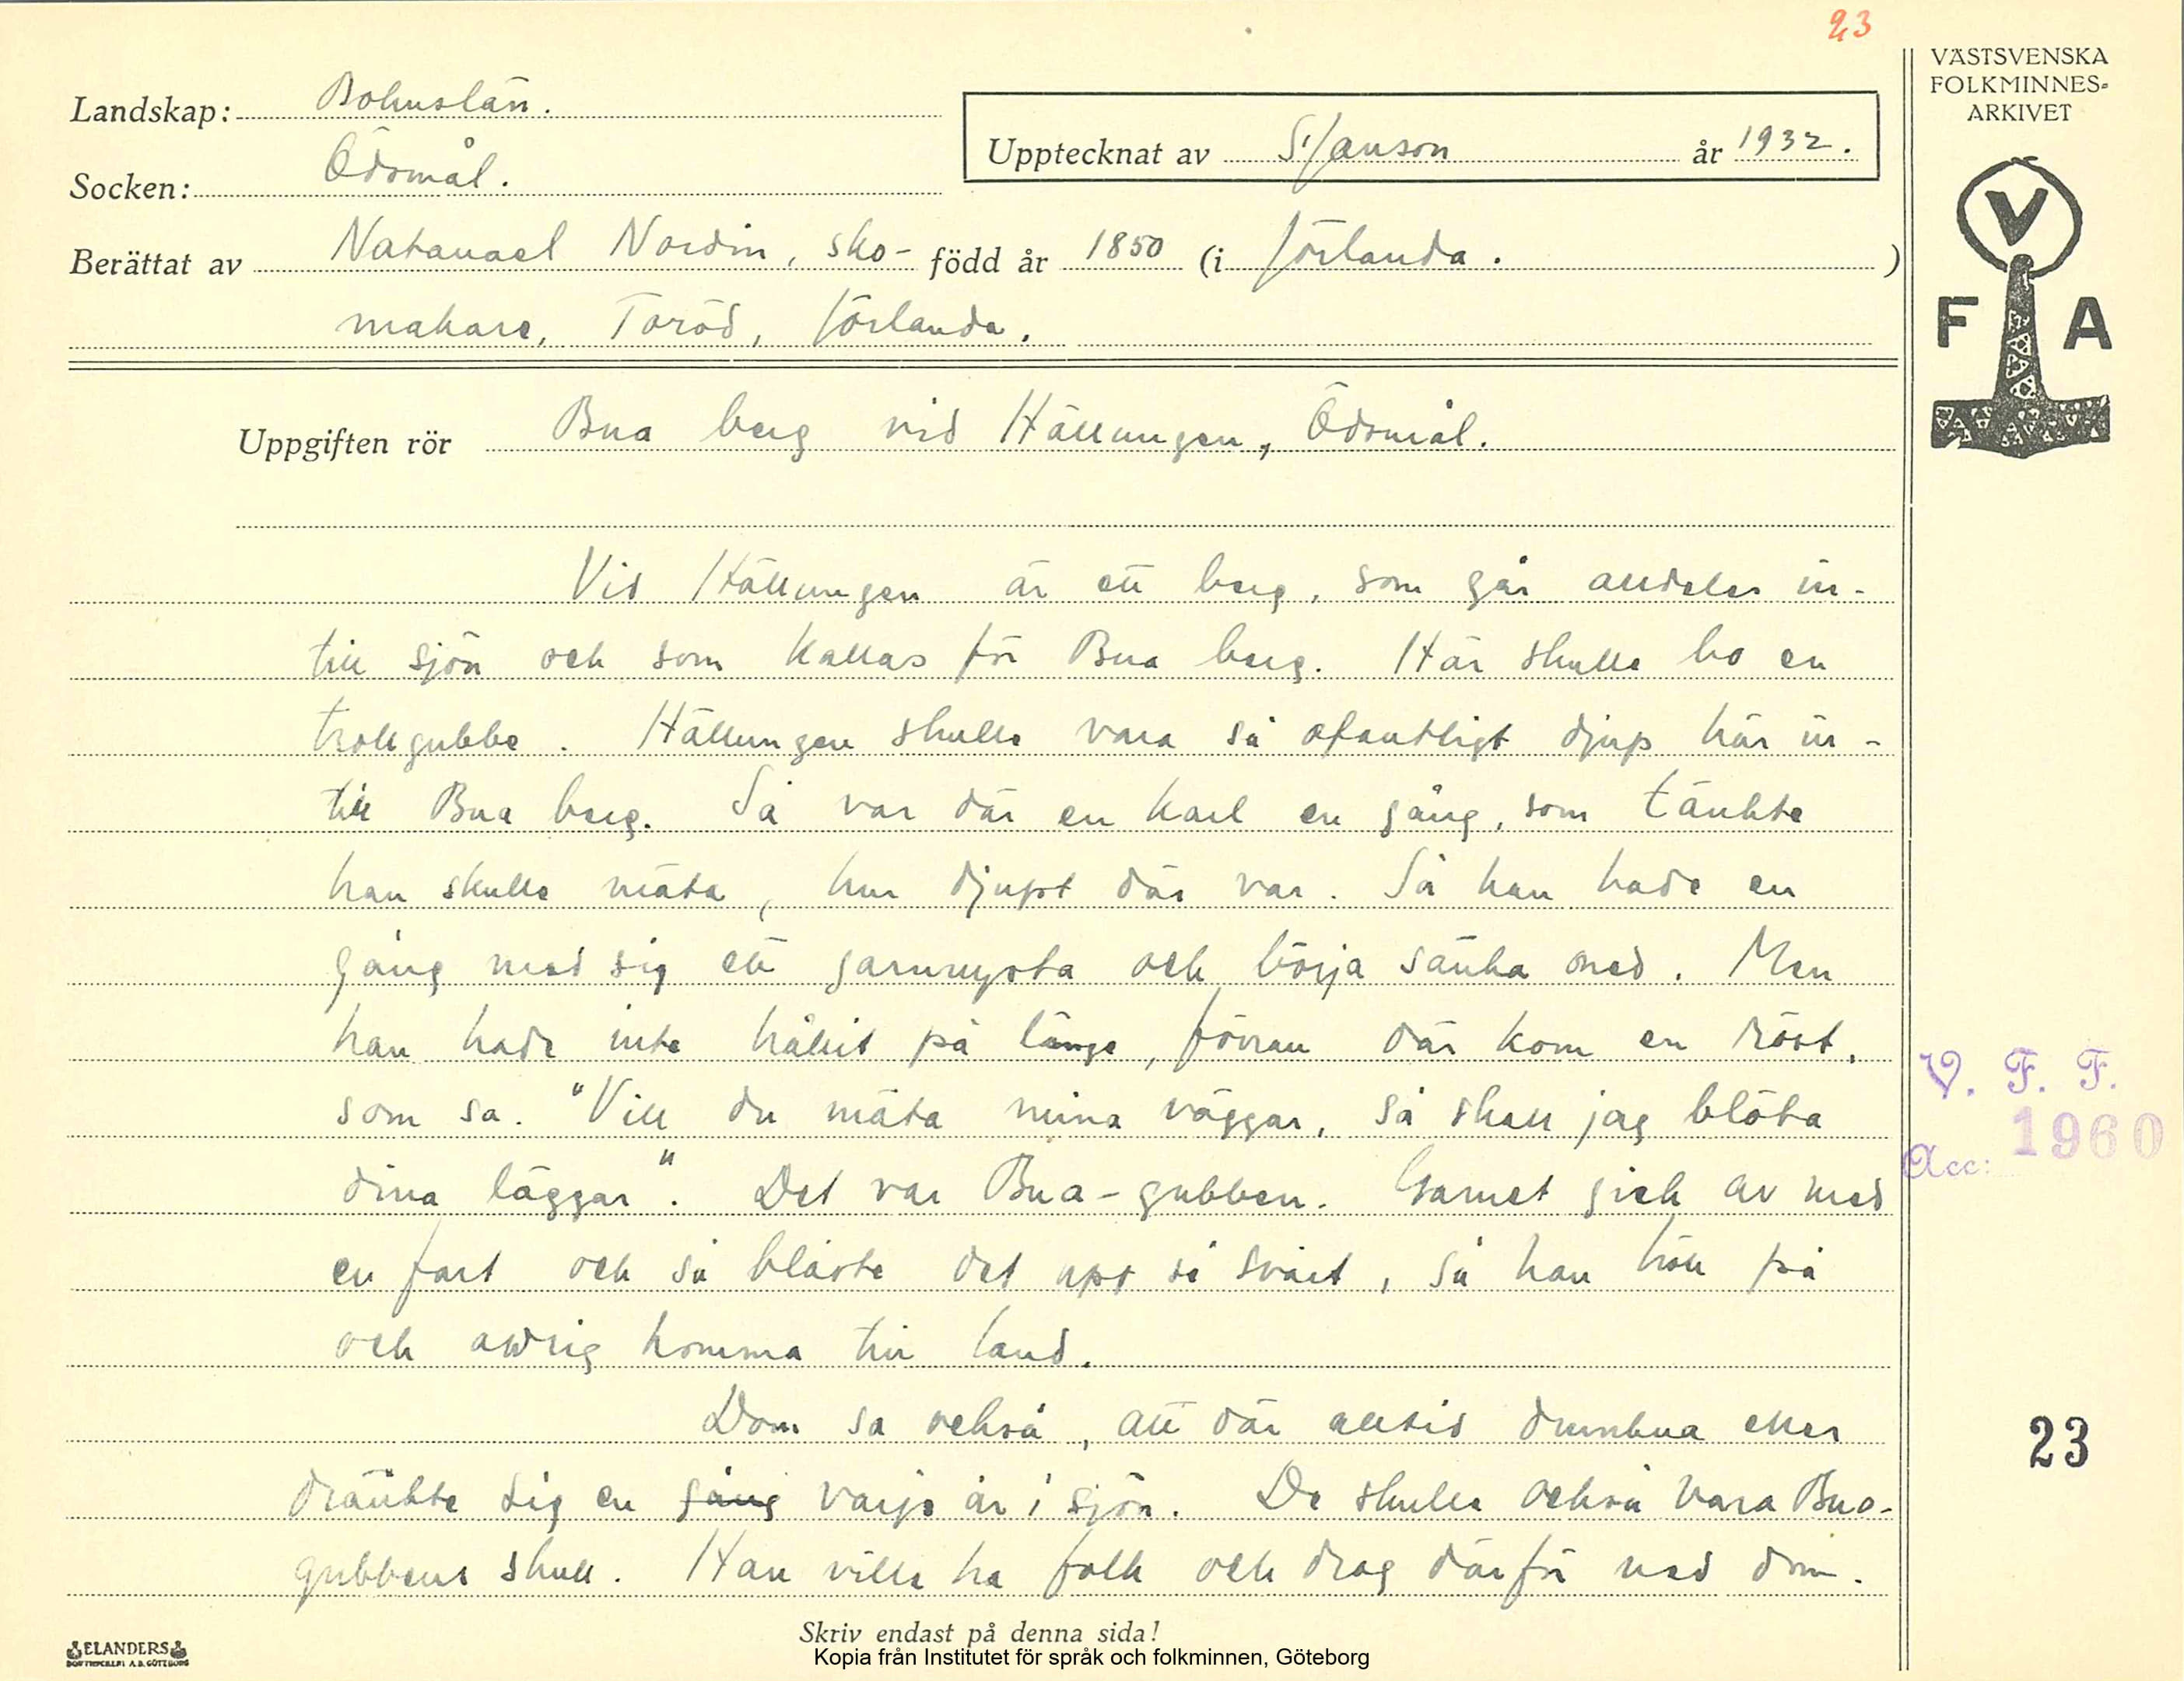 23
VÄSTSVENSKA
FOLKMINNES-
ARKIVET
Landskap: Bohuslän.
Upptecknat av S/Janson år 1932.
Socken: Ödsmål.
Berättat av Natanael Nordin, sko- född år 1850 (i Jörlanda.)
makare, Toröd, Jörlanda.
V
F A
Uppgiften rör Bua berg vid Hällungen, Ödsmål.
Vid Hällungen är ett berg, som går alldeles in-
till sjön och som kallas för Bua berg. Här skulle bo en
trollgubbe. Hällungen skulle vara så ofantligt djup här in-
till Bua berg. Så var där en karl en gång, som tänkte
han skulle mäta, hur djupt där var. Så han hade en
gång med sig ett garnnysta och börja sänka med. Men
han hade inte hållit på länge, förran där kom en röst,
som sa. "Vill du mäta mina väggar, så skall jag blöta
dina läggar". Det var Bua-gubben. Garnet gick av med
en fart och så blåste det upp så svårt, så han höll på
och aldrig komma till land.
Dom sa också, att där alltid drunkna eller
dränkte sig en gång varje år i sjön. De skulle också vara Bua-
gubbens skull. Han ville ha folk och drog därför ned dom.
V. F. F.
1960
Acc:
23
Skriv endast på denna sida!
ELANDERS
BOKTRYCKERI A.B. GÖTEBORG
Kopia från Institutet för språk och folkminnen, Göteborg